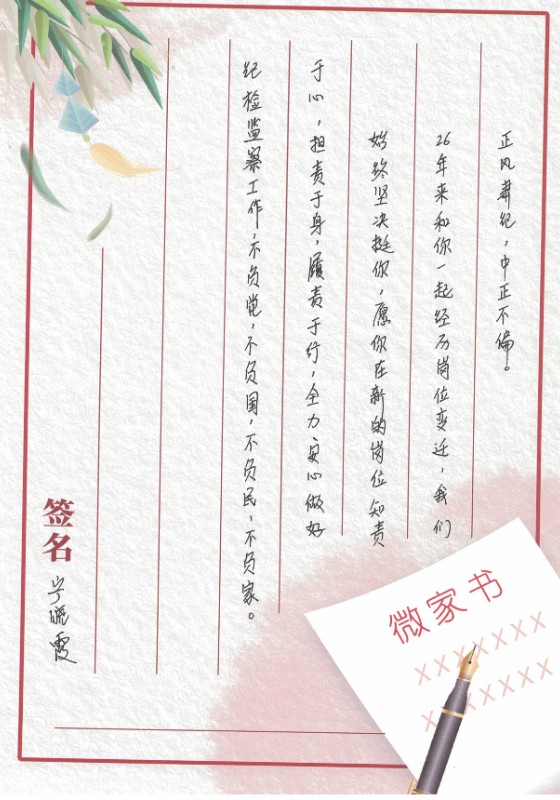 正风肃纪，中正不偏。
26年来和你一起经历岗位变迁，我们
始终坚决挺你，愿你在新的岗位知责
于心，担责于身，履责于行，全力安心做好
纪检监察工作，不负党，不负国，不负民，不负家。
签名
晓霞
微家书
XXXXXXX
XXXXXXX